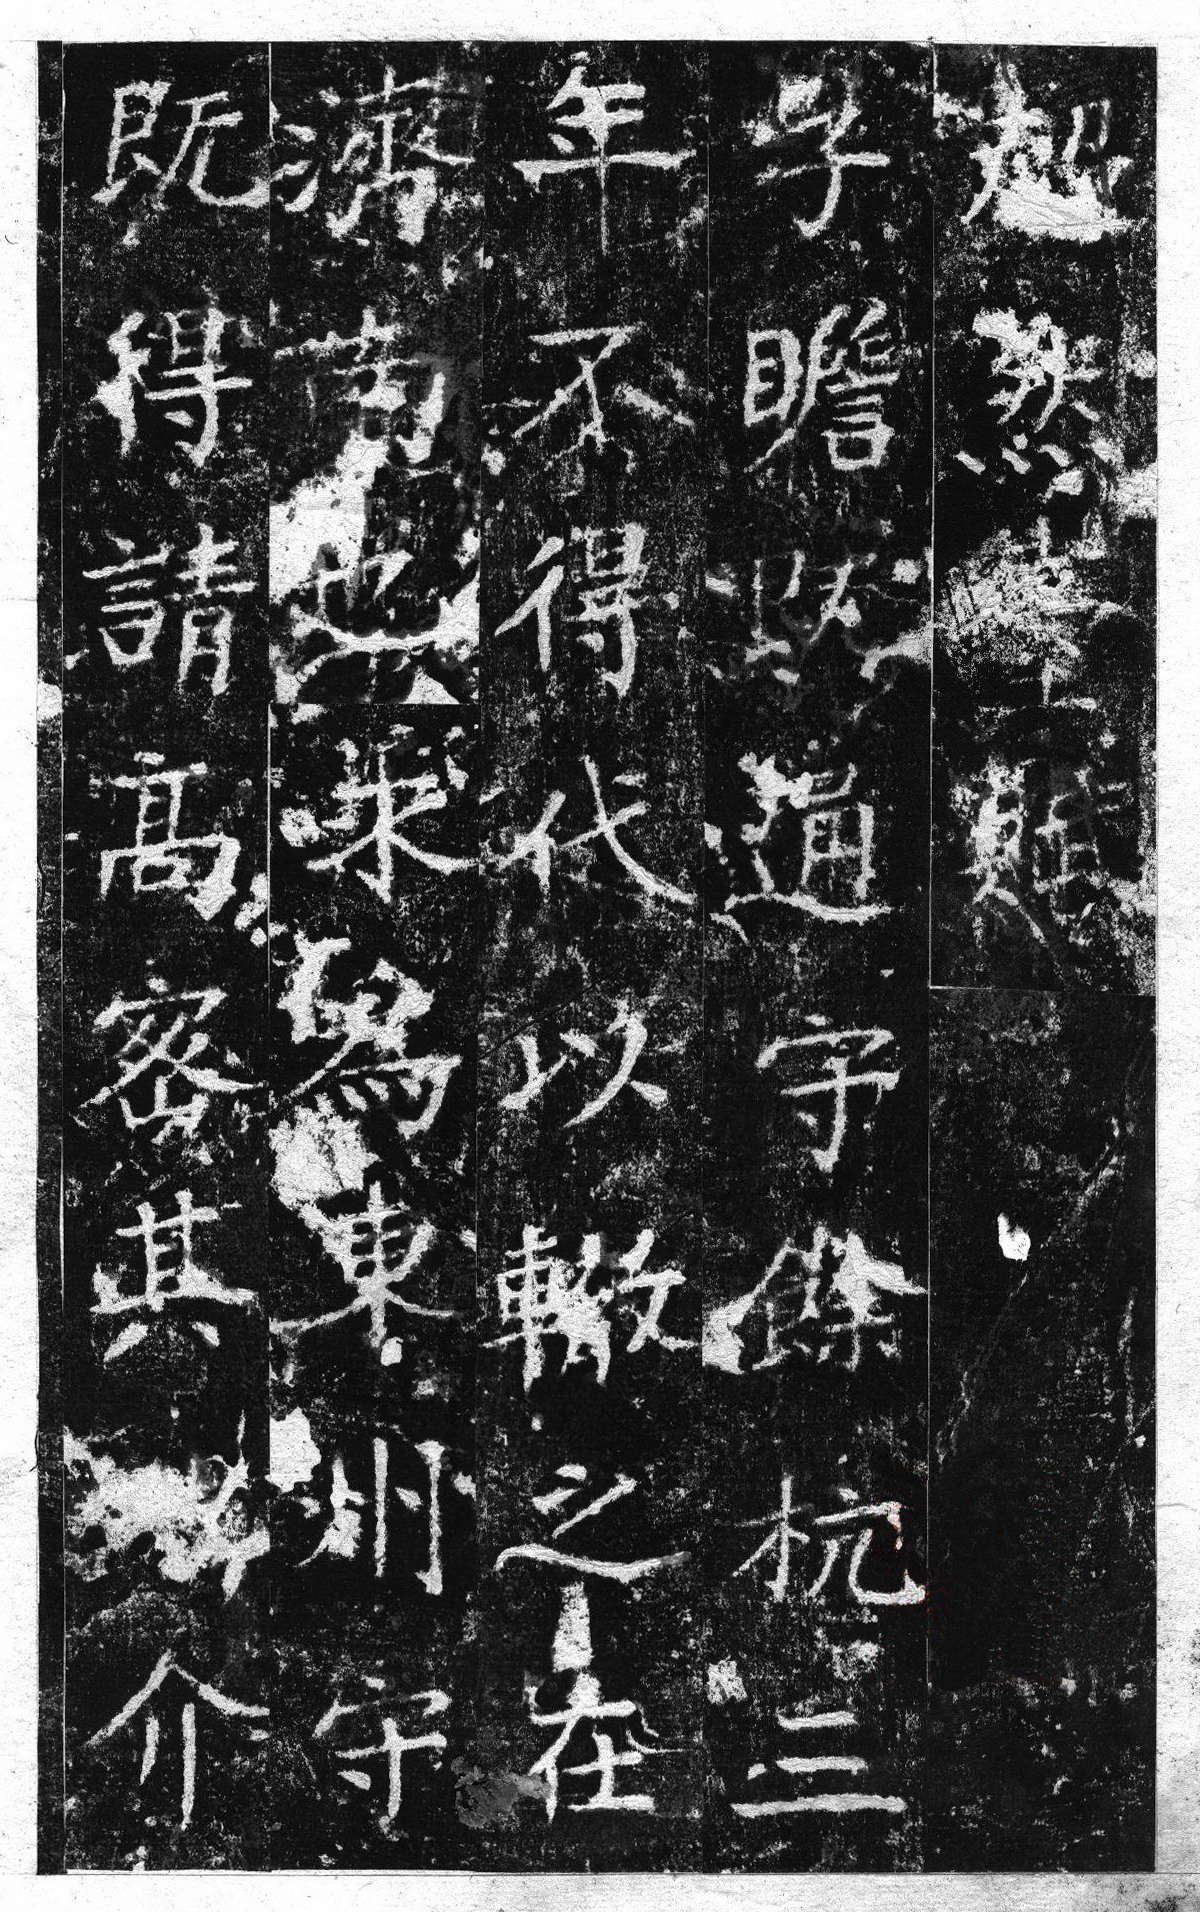 超然臺賦
子瞻既通守餘杭三
年不得代以轍之在
濟南也求爲東州守
既得請髙密其介